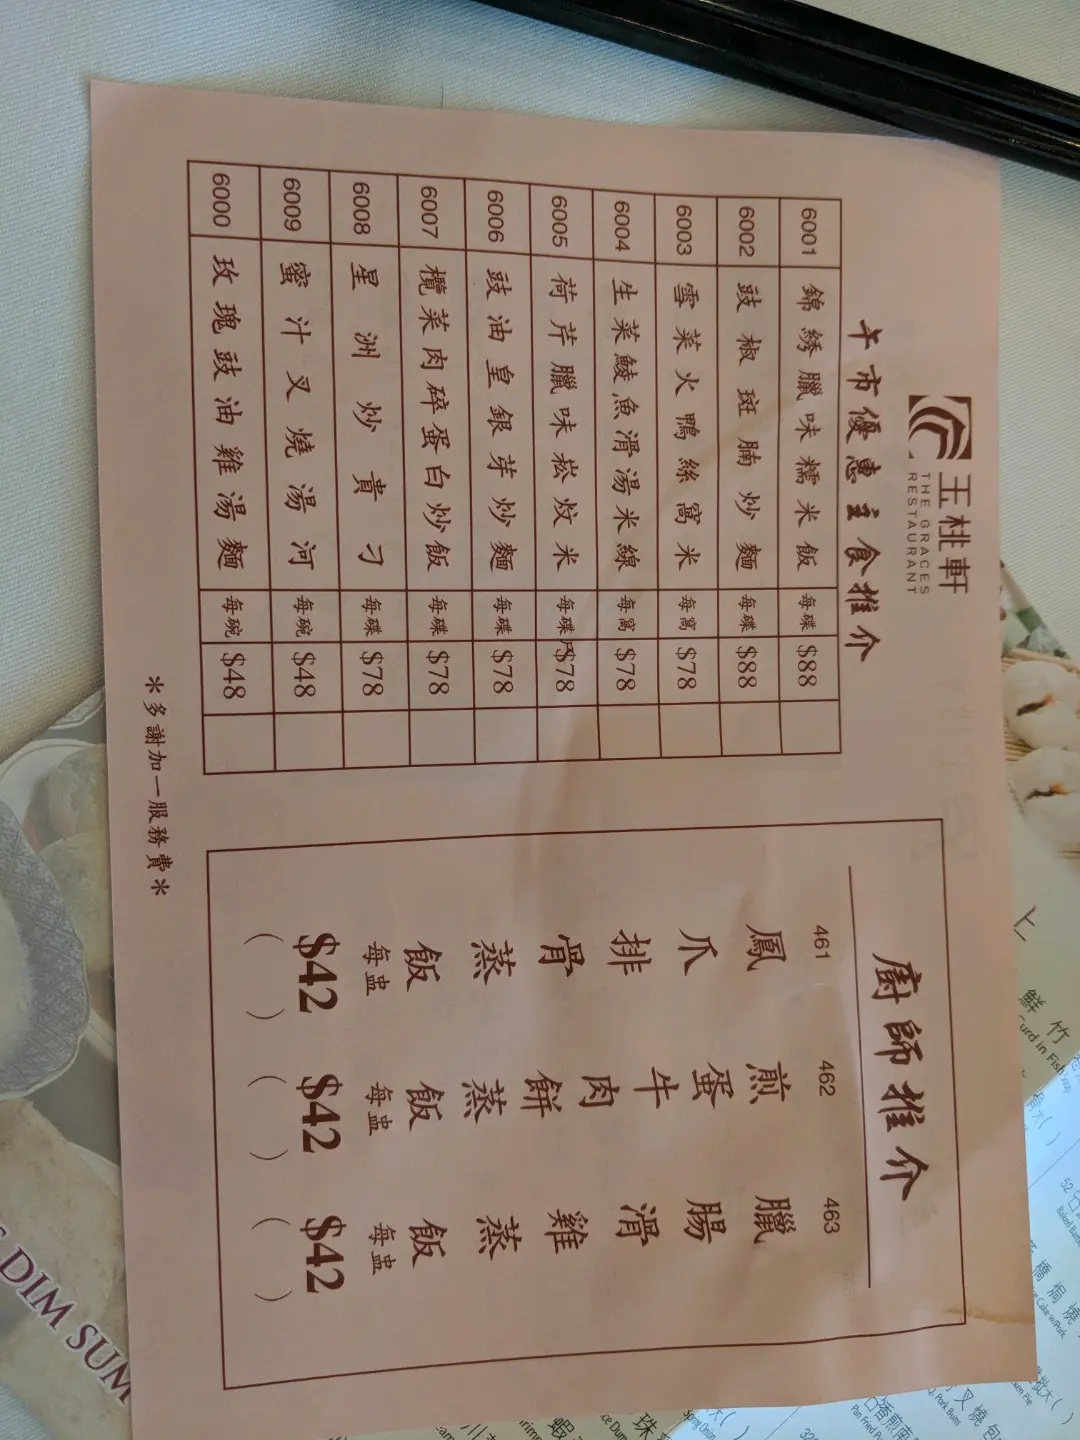 玉桃軒
THE GRACES
RESTAURANT
午市優惠主食推介
6001 錦綉臘味糯米飯 每碟 $88
6002 豉椒斑腩炒麵 每碟 $88
6003 雪菜火鴨絲窩米 每窩 $78
6004 生菜鯪魚滑湯米線 每窩 $78
6005 荷芹臘味崧炆米 每碟 $78
6006 豉油皇銀芽炒麵 每碟 $78
6007 欖菜肉碎蛋白炒飯 每碟 $78
6008 星洲炒貴刁 每碟 $78
6009 蜜汁叉燒湯河 每碗 $48
6000 玫瑰豉油雞湯麵 每碗 $48
*多謝加一服務費*
廚師推介
461 鳳爪排骨蒸飯 每盅 $42 ( )
462 煎蛋牛肉餅蒸飯 每盅 $42 ( )
463 臘腸滑雞蒸飯 每盅 $42 ( )
DIM SUM
鮮竹
Curd in Fish
52
叉燒包
Pork Buns
Pan Fried